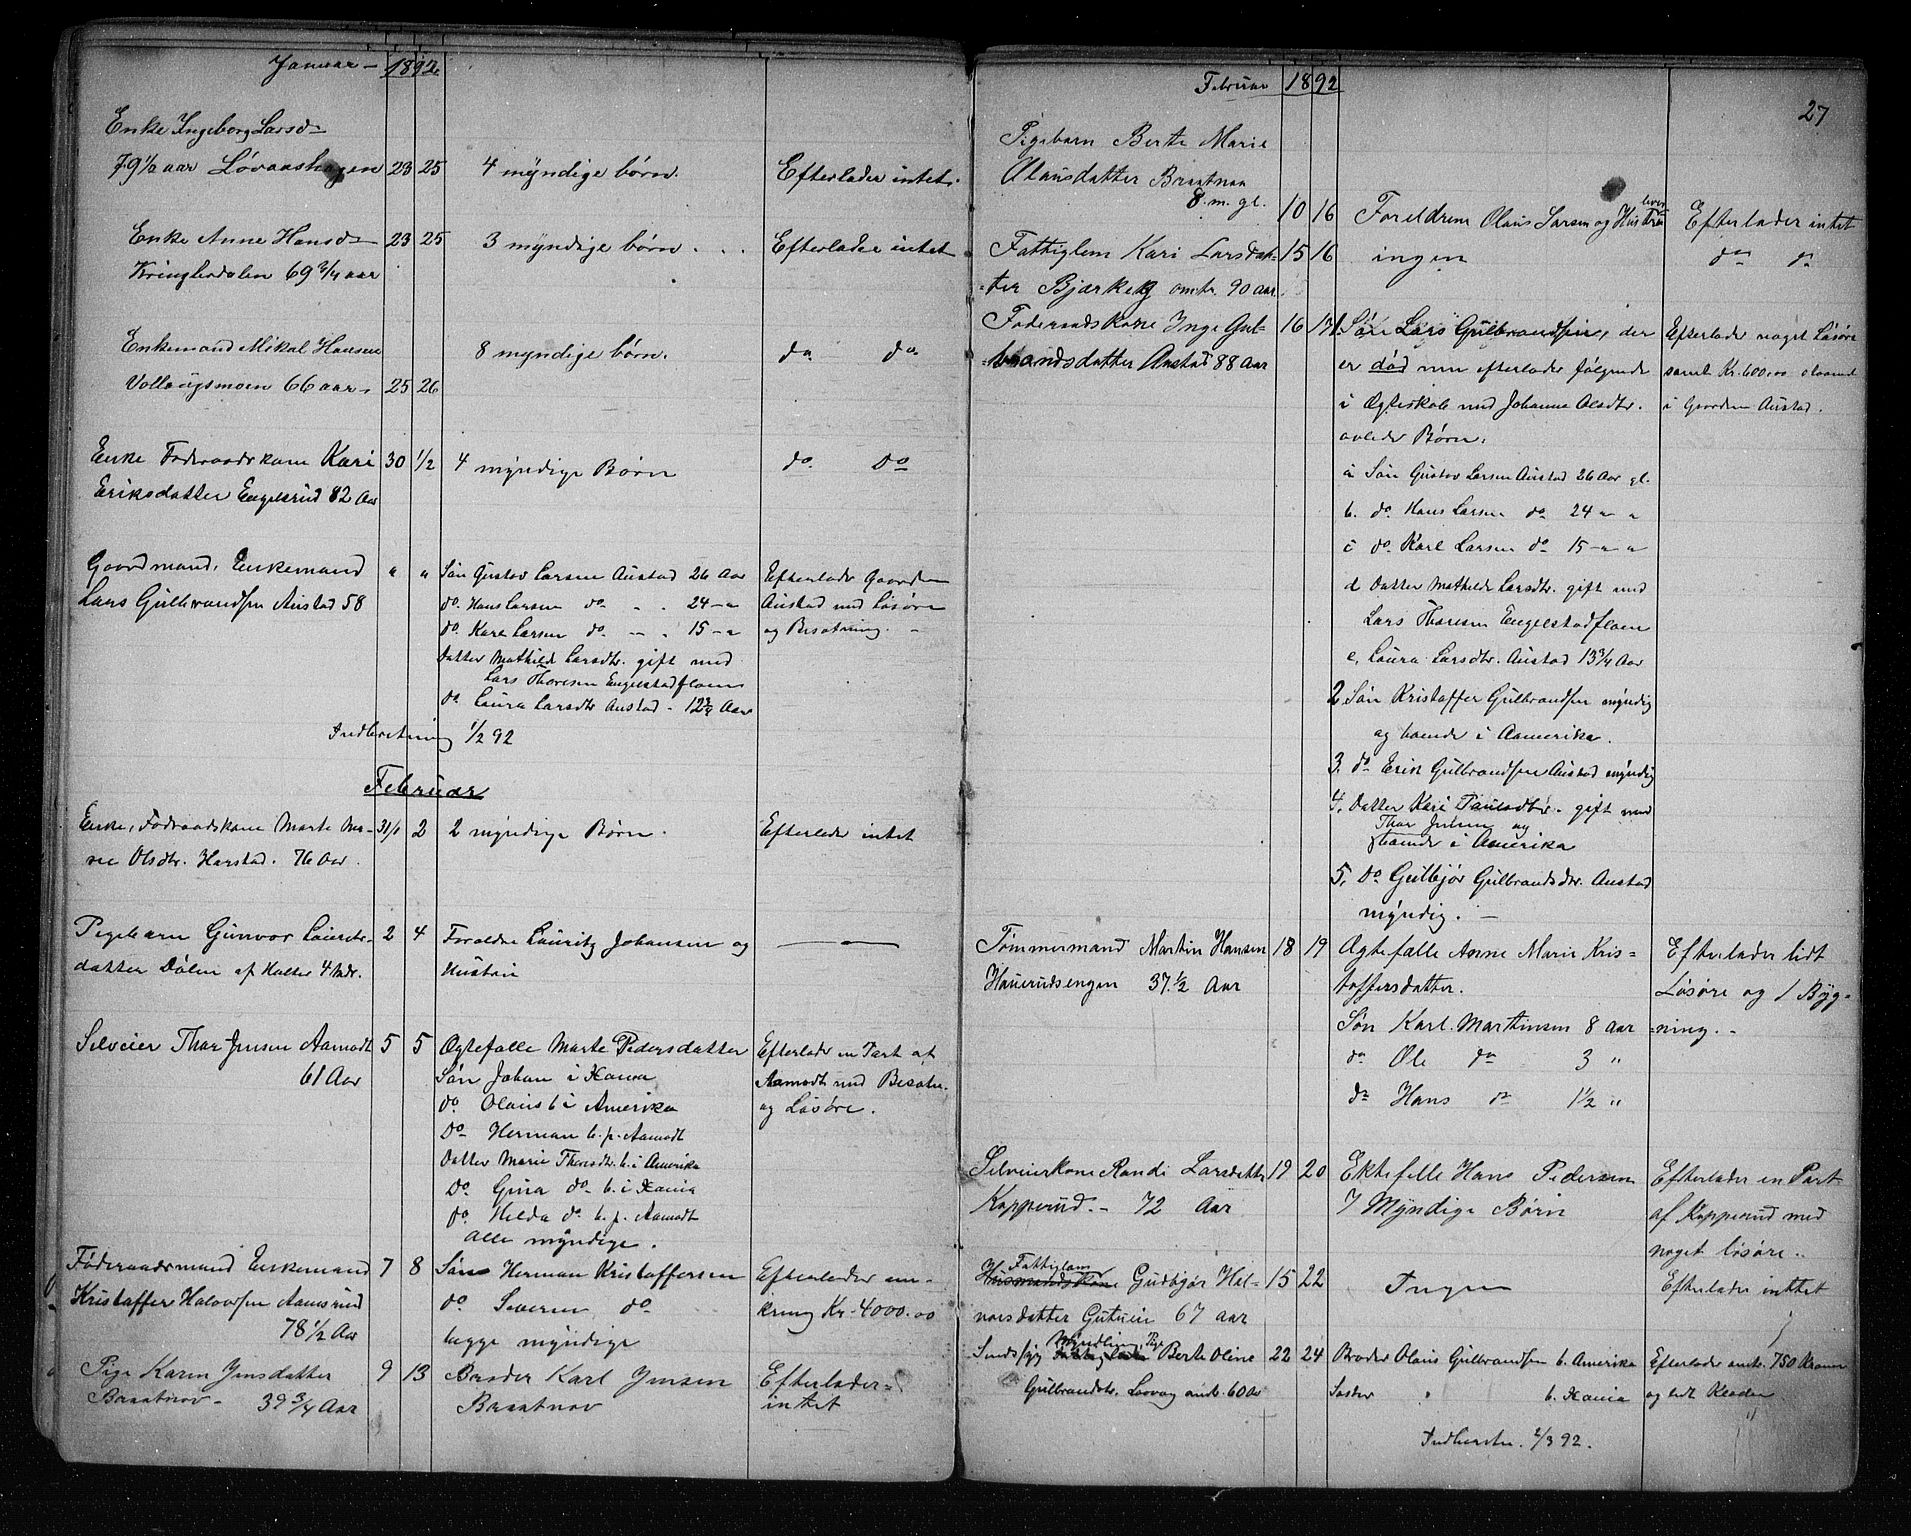 Januar – 1892.
Enke Ingeborg Larsd–
79 1/2 aar Lövaashagen 23 25 4 myndige børn. Efterlader intet.
Enke Anne Hansd– 23 25 3 myndige børn . . Efterlader intet
Kringlerdalen 69 3/4 aar
Enkemand Mikal Hansen 8 myndige børn. do do
Vollaugsmoen 66 aar 25 26
Enke Föderaadskone Kari 30 1/2 4 myndige Børn do. Do
Eriksdatter Engelsrud 82 Aar
Gaardmand, Enkemand " " Søn Gustov Larsen Austad 26 Aar Efterlader Gaarden
Lars Gulbrandsen Austad 58 do. Hans Larsen do . . 24 – " Austad med Løsøre
do. Karl Larsen do – . 15 – " og Besætning. –
Datter Mathilde Larsdtr. gift med
Lars Thoresen Engelstadfloen
do Laura Larsdtr Austad – 12 3/4 Aar
Indberetning 1/2 92
Februar
Enke, Födraadskone Marte Ma– 31/1 2 2 myndige Børn. Efterlader intet
rie Olsdtr. Harstad. 76 Aar.
Pigebarn Gunvor Lauritz– 2 4 Forældre Lauritz Johansen og —"—
datter Dølen af Holter 4 Mdr. Hustru
Selveier Thor Jensen Aamodt 5 5 Ægtefælle Marte Pedersdatter Efterlader en Part af
61 Aar Søn Johan i Xania Aamodt med Besætn.
do. Olaus b i Amerika og Løsøre.
Do Herman b. p. Aamodt
Datter Marie Thorsdtr. b. i Amerika
Do Gina do b. i Xania
Do Hilda do b. p. Aamodt
alle myndige.
Føderaadsmand Enkemand 7 8 Søn Herman Kristoffersen Efterlader om–
Kristoffer Halvorsen Aamsrud do. Severin do kring Kr. 4000.00
78 1/2 Aar begge myndige
Pige Karen Jensdatter 9 13 Broder Karl Jensen Efterlader
Braatnov – 39 3/4 Aar Braatnov intet
Februar 1892
27
Pigebarn Berte Marie
Olausdatter Braatnaa
8. m. gl. 10 16 Foreldrene Olaus Larsen og Hustru lever Efterlader intet
Fattiglem Kari Larsdat– 15 16 ingen do do
ter Bjerkeng omtr. 90 aar.
Föderaadskone Inge Gul– 16 17 1. Søn Lars Gulbrandsen, der Efterlader noget Løsøre
brandsdatter Austad 88 Aar er død men efterlader følgende samt Kr. 600.00 staaende
i Ægteskab med Johanne Olsdtr. i Gaarden Austad.
avlede Børn.
a Søn Gustov Larsen Austad 26 Aar gl.
b. do. Hans Larsen do 24 – "
c do. Karl Larsen do 15 – " "
d Datter Mathilde Larsdtr. gift med
Lars Thoresen Engelstadfloen
e. Laura Larsdtr. Austad 13 3/4 Aar
2 Søn Kristoffer Gulbrandsen myndig
og boende i Aamerika.
3. do Erik Gulbrandsen Austad myndig
4. Datter Kari Paulsdtr. gift med
Thor Julsen og
boende i Amerika
5. Do Gulbjør Gulbrandsdr. Austad
myndig. –
Tømmermand Martin Hansen 18 19 Ægtefælle Anne Marie Kris– Efterlader lidt
Hauerudsengen 37 1/2 Aar toffersdatter. Løsøre og 1 Byg–
Søn Karl Martinsen 8 aar ning. –
do Ole do 3 "
do Hans do 1 1/2 "
Selveierkone Randi Larsdatter 19 20 Ektefelle Hans Pedersen Efterlader en Part
Kopperud. – 72 Aar 7 Myndige Børn af Kopperud med
noget løsøre.
Fattiglem
Husmandskone Gudbjør Hal– 15 22 Ingen Efterlader intet
vorsdatter Gutuein 67 aar
Sindssyg Myndling, Pige Berte Oline 22 24 Broder Olaus Gulbrandsen b. Amerika Efterlader omtr. 750 Kroner
Gulbrandsdtr. omtr. 60 Aar Søster " b. Xania og lidt Klæder
Indberetn. 2/3 92.